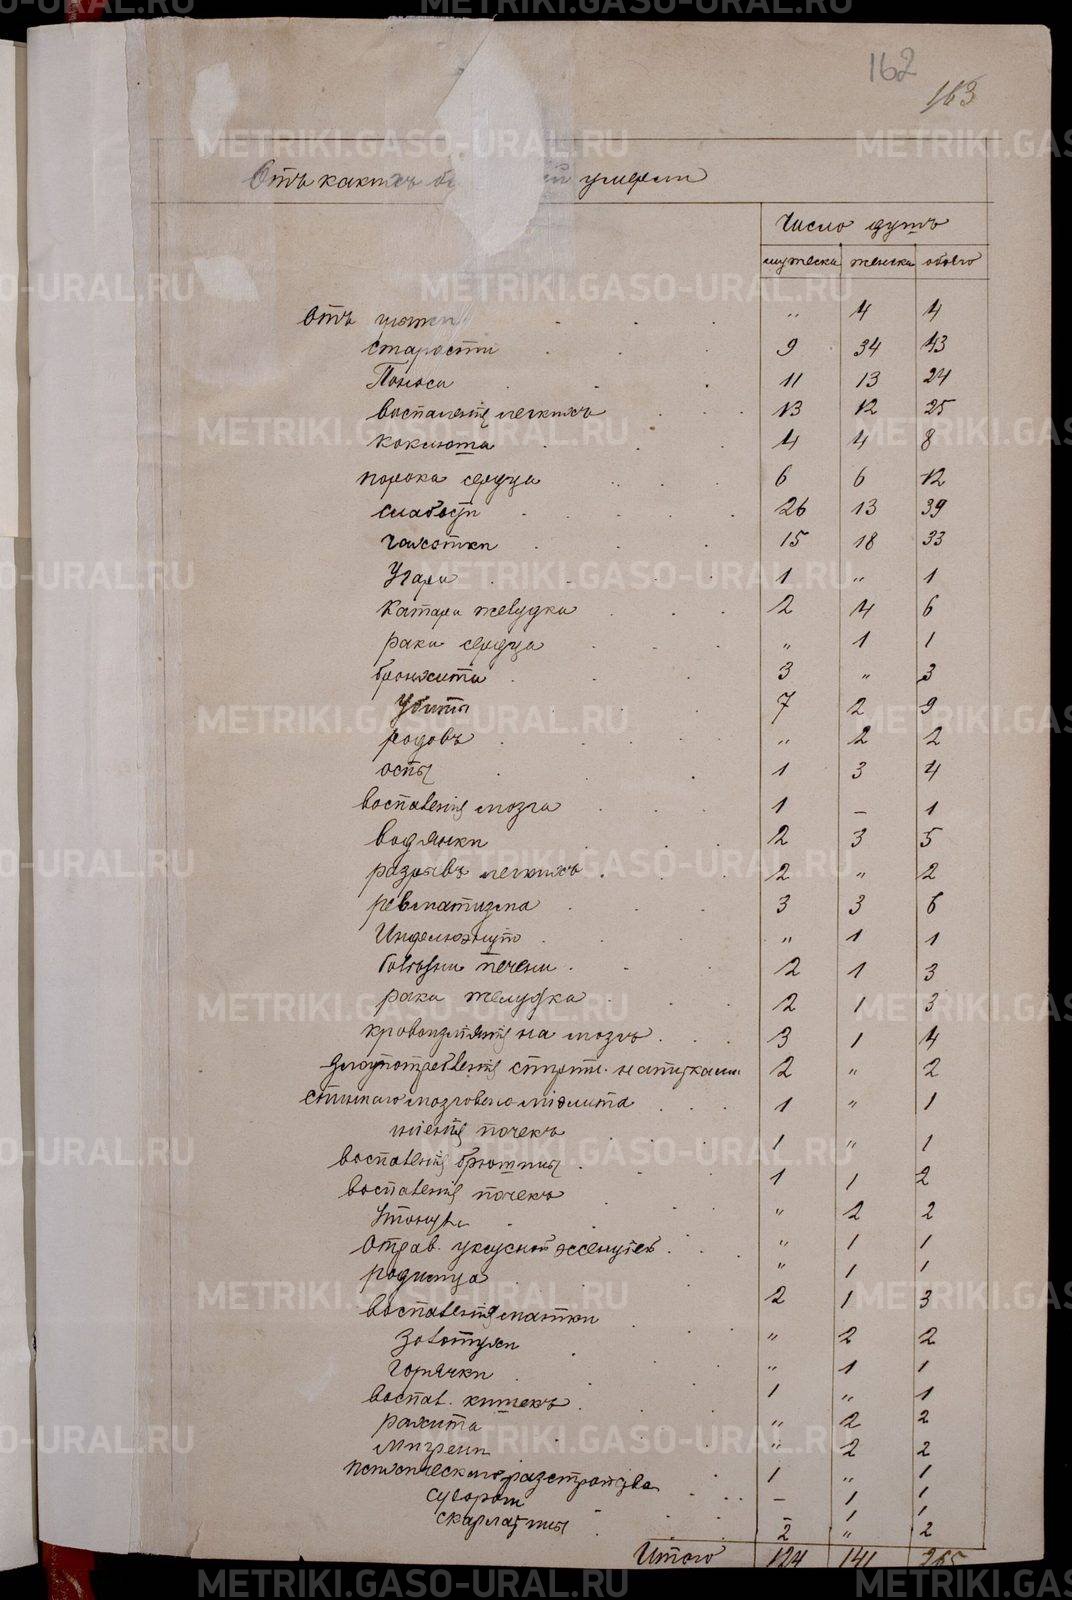 162
163
Отъ какихъ умерли
Число душъ
мужеска женска обоего
Отъ " 4 4
старости 9 34 43
Поноса 11 13 24
воспаленія легкихъ 13 12 25
коклюша 4 4 8
порока сердца 6 6 12
слабости 26 13 39
чахотки 15 18 33
Угара 1 " 1
Катара желудка 2 4 6
рака сердца " 1 1
бронхита 3 " 3
Убиты 7 2 9
родовъ " 2 2
оспы 1 3 4
воспаленія мозга 1 – 1
водянки 2 3 5
разрывъ легкихъ 2 " 2
ревматизма 3 3 6
Инфлюэнціи " 1 1
болѣзни печени 2 1 3
рака желудка 2 1 3
кровоизліянія на мозгъ 3 1 4
злоупотребленія спиртн. напитками 2 " 2
спинного мозгового міэлита 1 " 1
почекъ 1 " 1
воспаленія брюшины 1 1 2
воспаленія почекъ " 2 2
Утонула " 1 1
Отрав. уксусной эссенціей " 1 1
родимца 2 1 3
воспаленія матки " 2 2
Золотухи " 1 1
горячки 1 " 1
воспал. кишекъ " 2 2
рахита " 2 2
мигрени 1 " 1
психическаго разстройства – 1 1
судорогъ – 1 1
скарлатины 2 " 2
Итого 124 141 265
METRIKI.GASO-URAL.RU